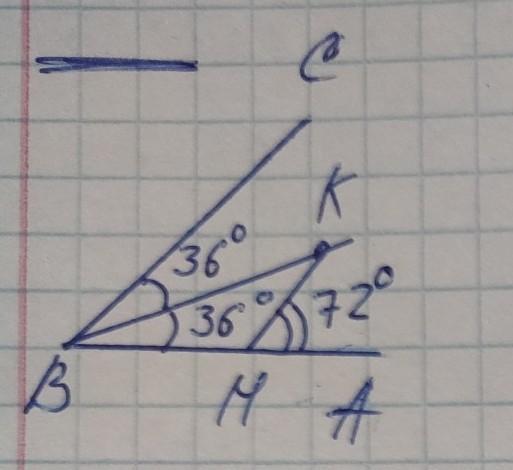 C
K
36°
36°
72°
B
M
A